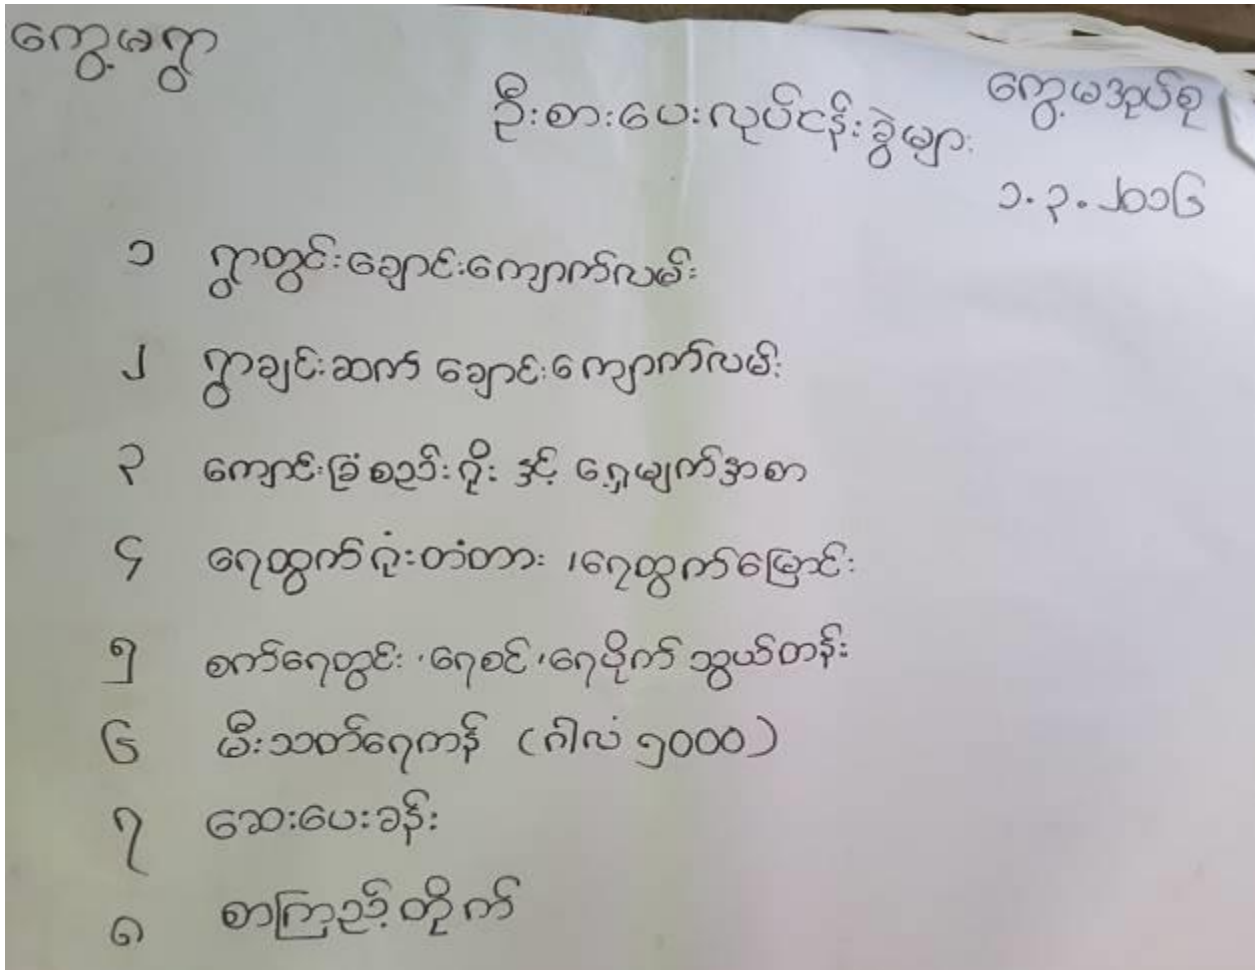 ကွေ့မရွာ
ကွေ့မအုပ်စု
ဦးစားပေးလုပ်ငန်းခွဲများ
၁.၃.၂၀၁၆
၁ ရွာတွင်းချောင်းကျောက်လမ်း
၂ ရွာချင်းဆက် ချောင်းကျောက်လမ်း
၃ ကျောင်းခြံစည်းရိုး နှင့် ရှေ့မျက်နှာစာ
၄ ရေထွက်ဂုံးတံတား ၊ရေထွက်မြောင်း
၅ စက်ရေတွင်း ၊ရေစင် ၊ရေပိုက် သွယ်တန်း
၆ မီးသတ်ရေကန် (ဂါလံ ၅၀၀၀)
၇ ဆေးပေးခန်း
၈ စာကြည့်တိုက်